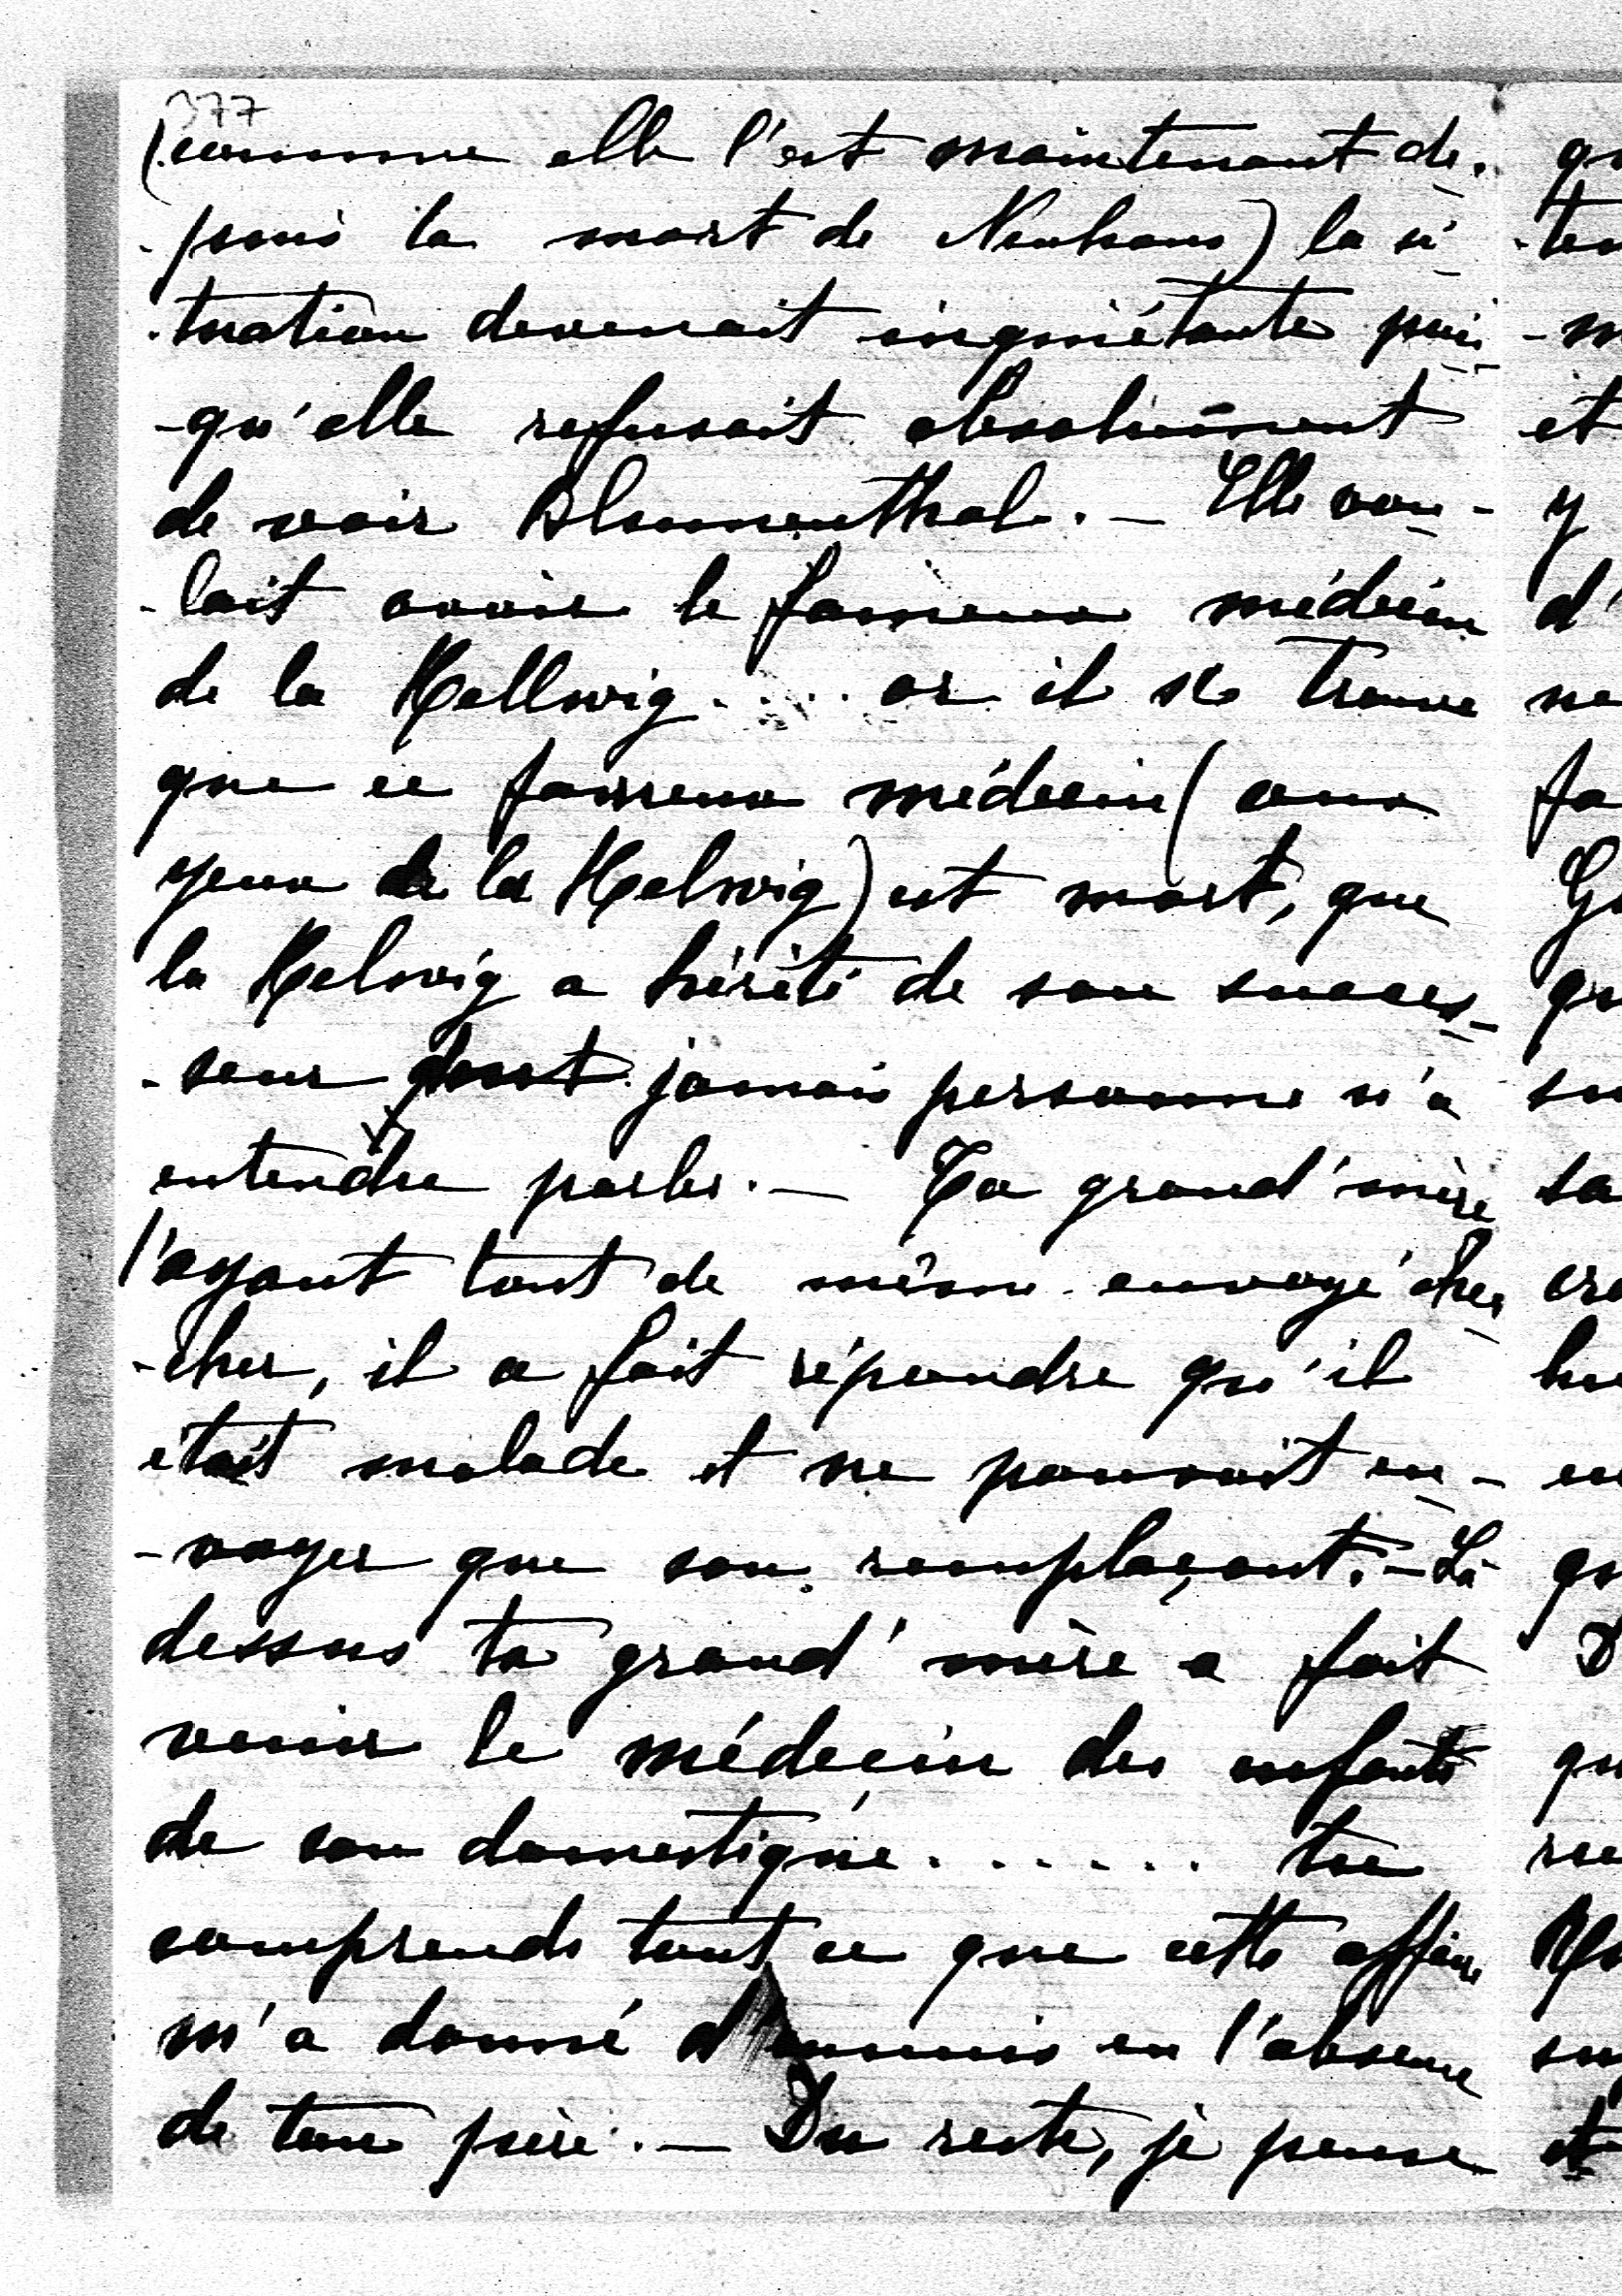 377
(comme elle l'est maintenant de-
-puis la mort de Neuhaus) la si-
-tuation devenait inquiétante puis-
-qu'elle refusait absolument
de voir Blumenthal. — Elle vou-
-lait avoir le fameux médecin
de la Hellwig..... or il se trouve
que ce fameux médecin (aux
yeux de la Helwig) est mort, que
la Helwig a hérité de son succes-
-seur dont jamais personne n'a
entendre parler. — Ta grand'mère
l'ayant tout de même envoyé cher-
-cher, il a fait répondre qu'il
était malade et ne pouvait en-
-voyer que son remplaçant. — Là
dessus ta grand'mère a fait
venir le médecin des enfants
de son domestique....... tu
comprends tout ce que cette affaire
m'a donné d'ennuis en l'absence
de ton père. — Du reste, je pense